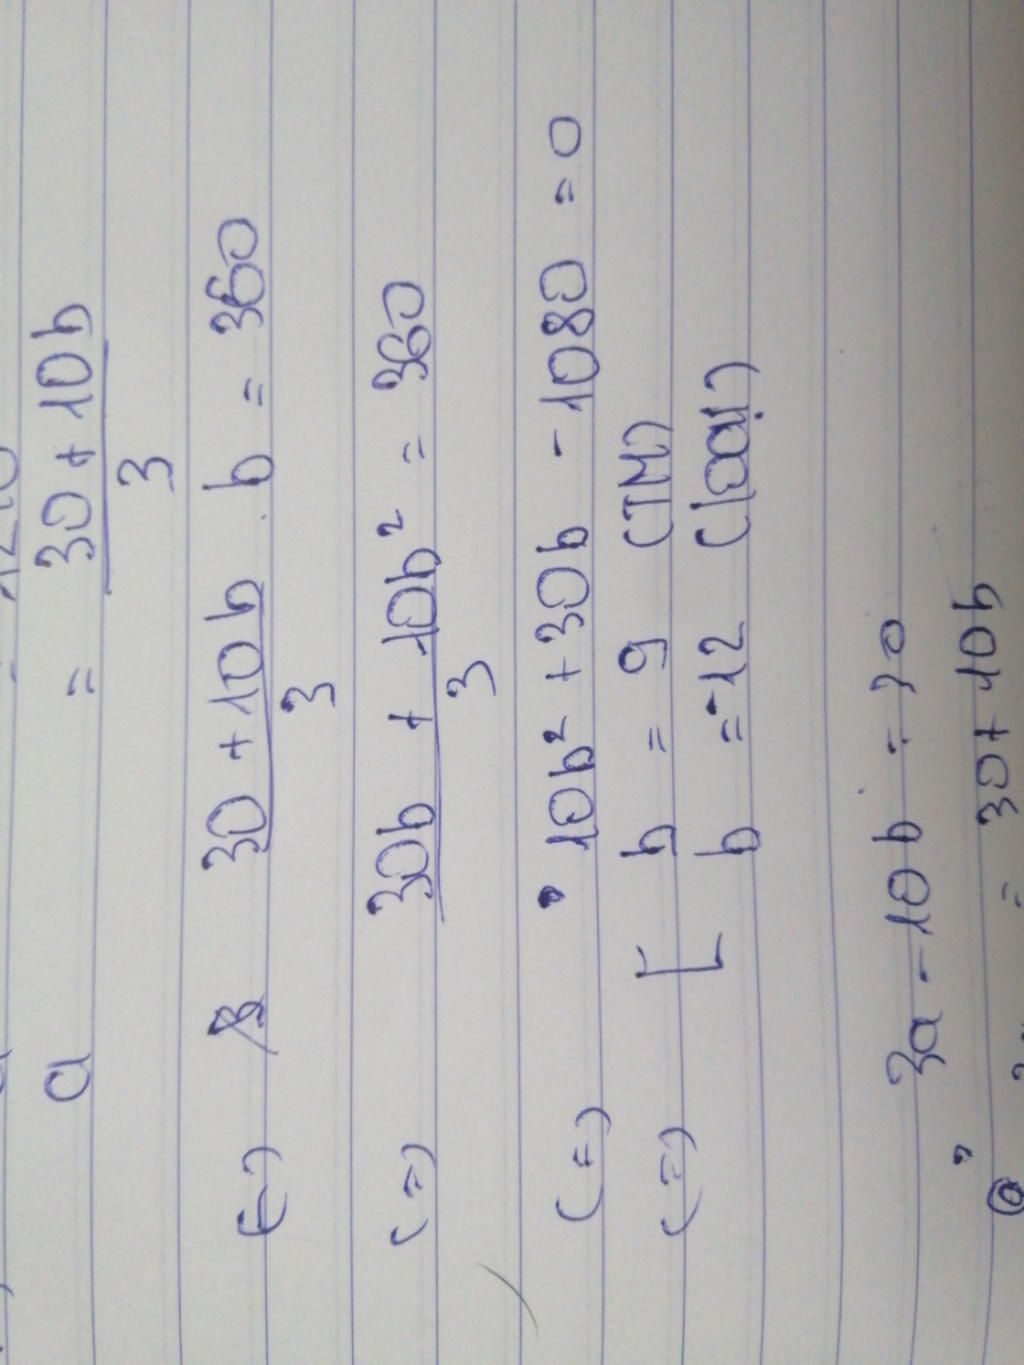 a = 30 + 10b / 3
(=) 30 + 10b / 3 . b = 360
(=) 30b + 10b² / 3 = 360
(=) 10b² + 30b - 1080 = 0
(=) [ b = 9 (TM)
b = -12 (loại)
3a - 10b = 30
= 30 + 10b